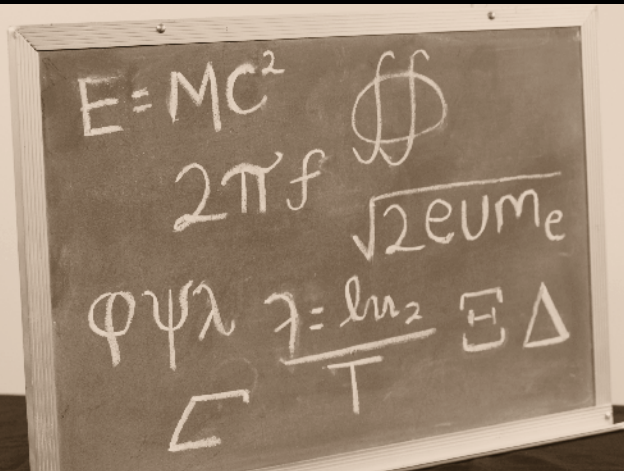 E=MC²
∯
2πf
√2eUMe
φψλ
λ=ln2
T
ΞΔ